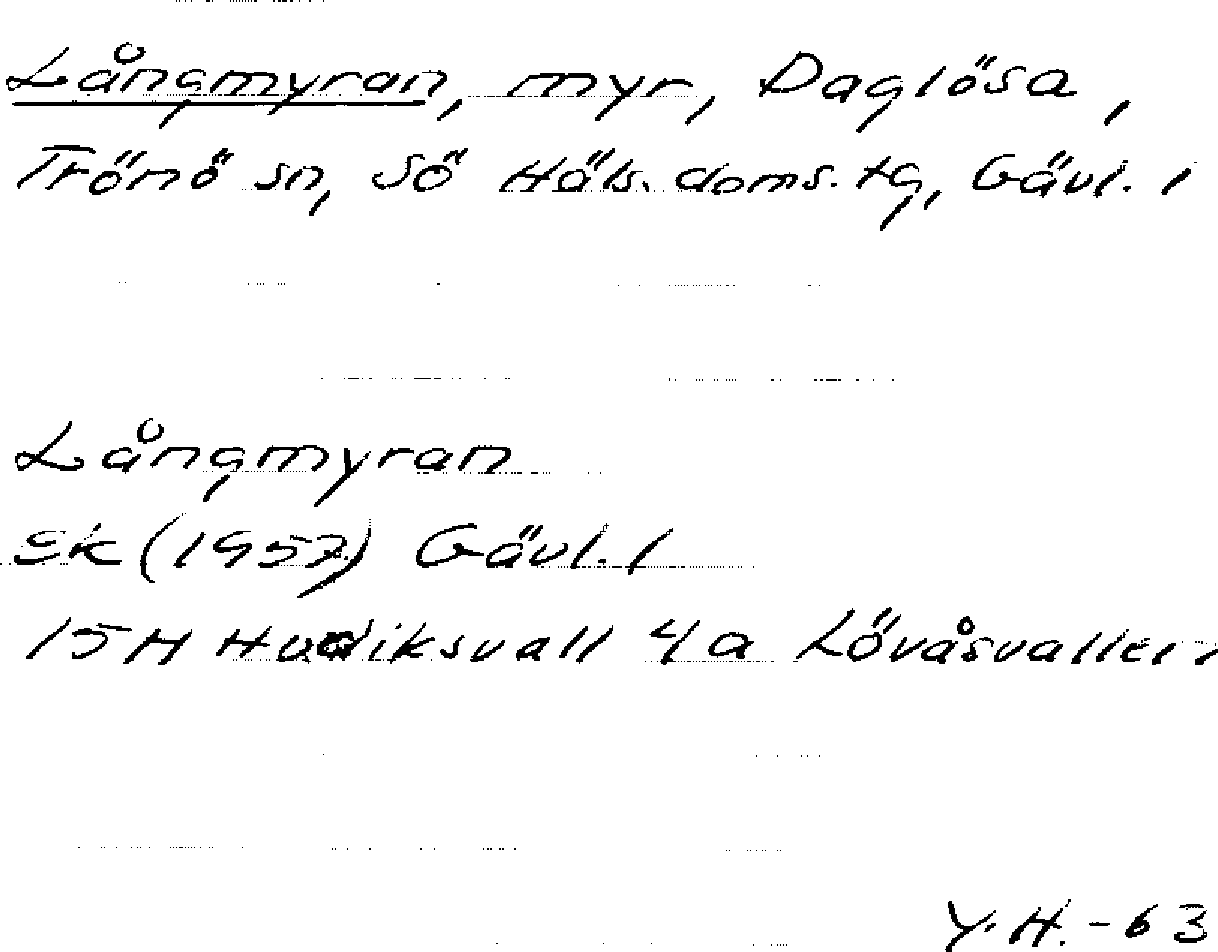 Långmyran, myr, Daglösa,
Trönö sn, Sö Häls. doms. tg, Gävl. l
Långmyran
Ek (1957) Gävl. l
15H Hudiksvall 4a Lövåsvallen
Y.H. - 63